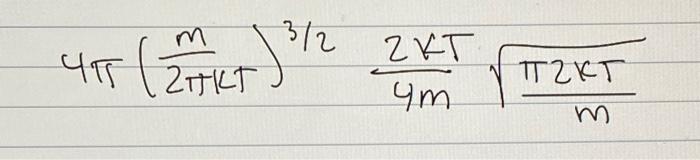 4π (m/2πKT)^3/2 2KT/4m √(π2KT/m)